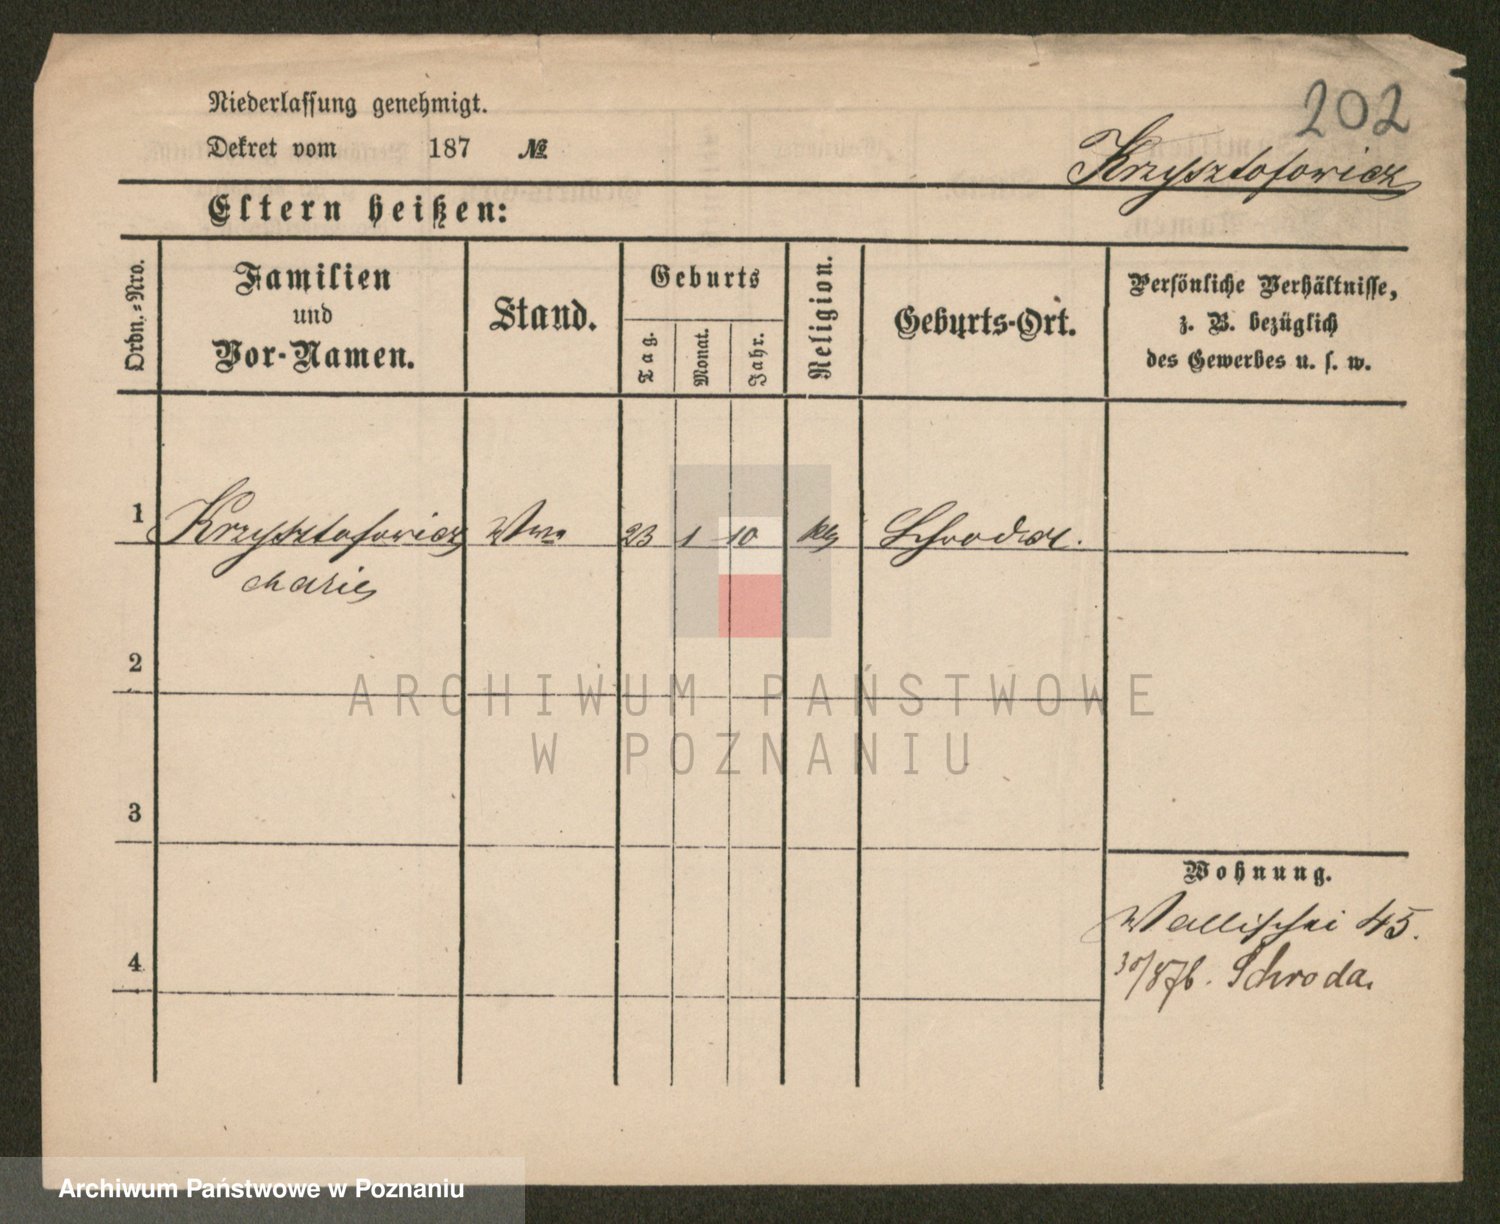 202
Niederlassung genehmigt.
Dekret vom 187 №
Krzysztofowicz
Eltern heißen:
Ordn.-Nro.
Familien
und
Vor-Namen.
Stand.
Geburts
Tag.
Monat.
Jahr.
Religion.
Geburts-Ort.
Persönliche Verhältnisse,
z. B. bezüglich
des Gewerbes u. s. w.
1 Krzysztofowicz Wwe 23 1 10 kth
Marie
2
ARCHIWUM PAŃSTWOWE
W POZNANIU
3
Wohnung.
Wallischei 45.
4
Schroda.
Archiwum Państwowe w Poznaniu